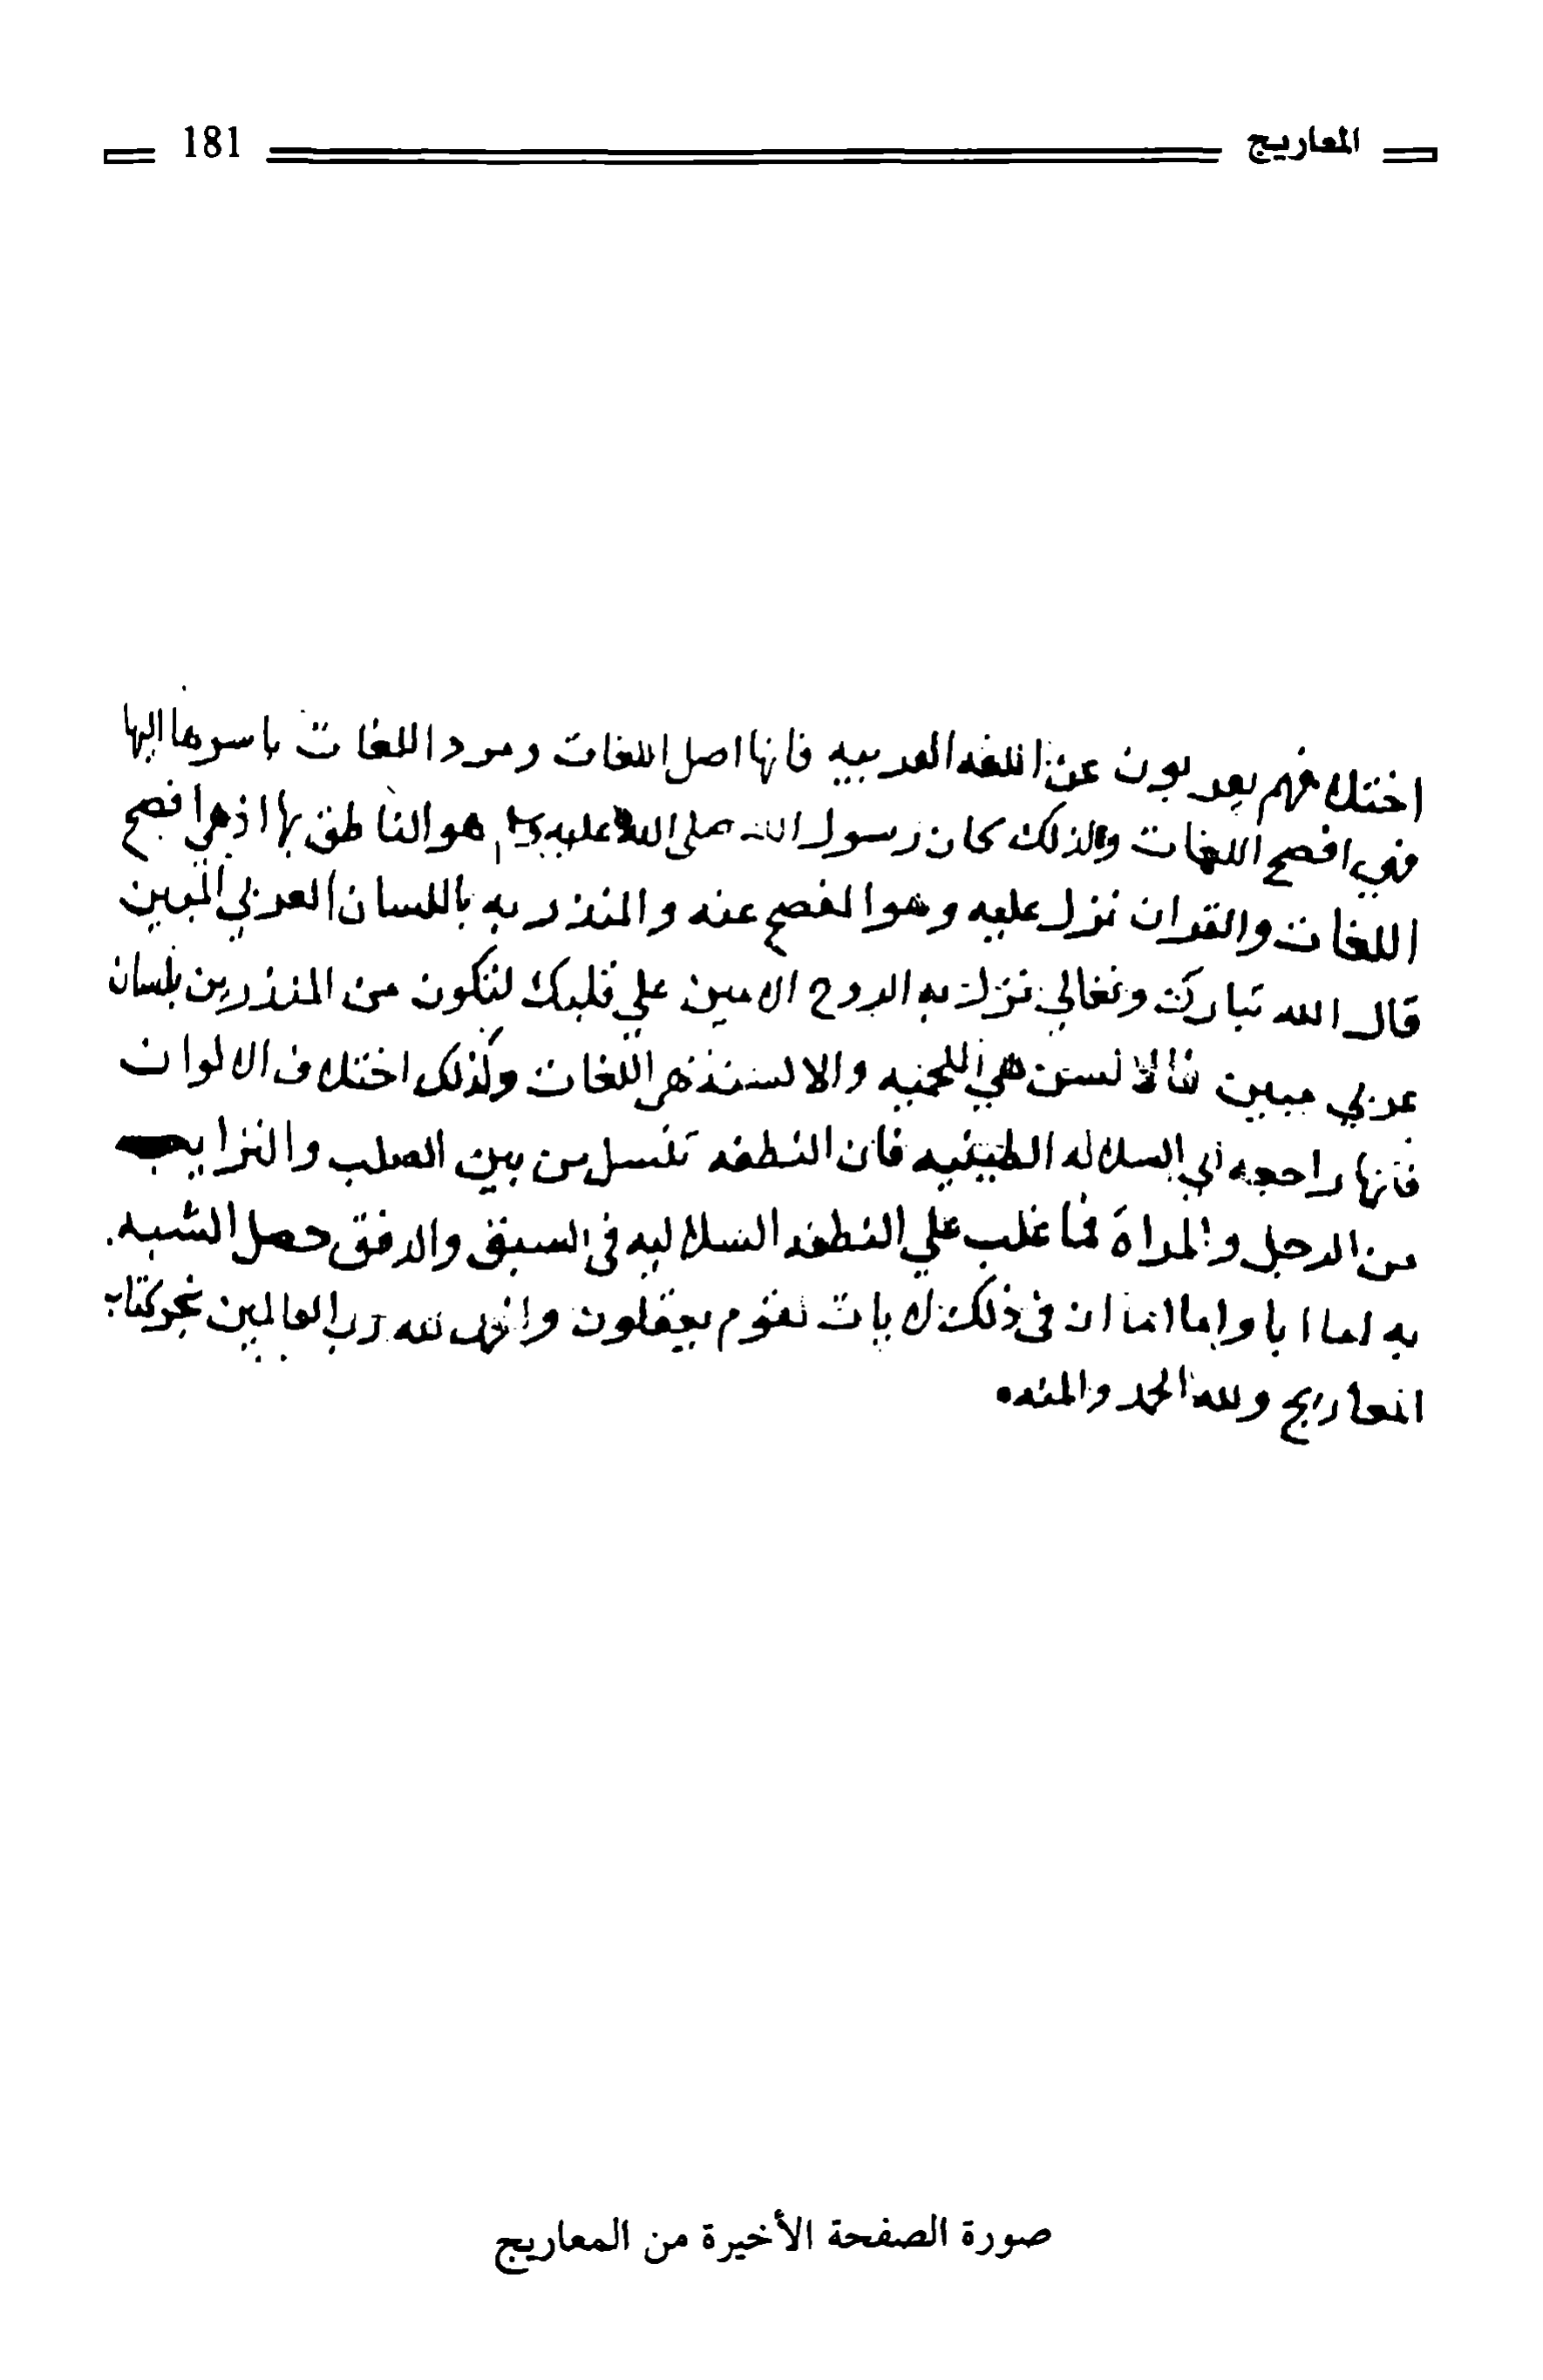 المعاريج 181
اختلافهم يعربون عن اللغه العربيه فانها اصل اللغات ومرد اللغات باسرها اليها
فهي افصح اللغات ولذلك كان رسول الله صلى الله عليه هو الناطق بها اذ هي افصح
اللغات والقران نزل عليه وهو المفصح عنه والمنذر به باللسان العربي المبين
قال الله تبارك وتعالي نزل به الروح الامين علي قلبك لتكون من المنذرين بلسان
عربي مبين فالالسن هي اللحميه والالسنة هي اللغات وكذلك اختلاف الالوان
فانها راجعه الي السلاله الطينيه فان النطفه تنسل من بين الصلب والترايب
من الرجل والمراة فما غلب علي النطفه السلاليه في السبق والدفق حصل الشبه
به اما ابا واما اما ان في ذلك لايات لقوم يعقلون والحمد لله رب العالمين نجز كتاب
المعاريج ولله الحمد والمنه
صورة الصفحة الأخيرة من المعاريج